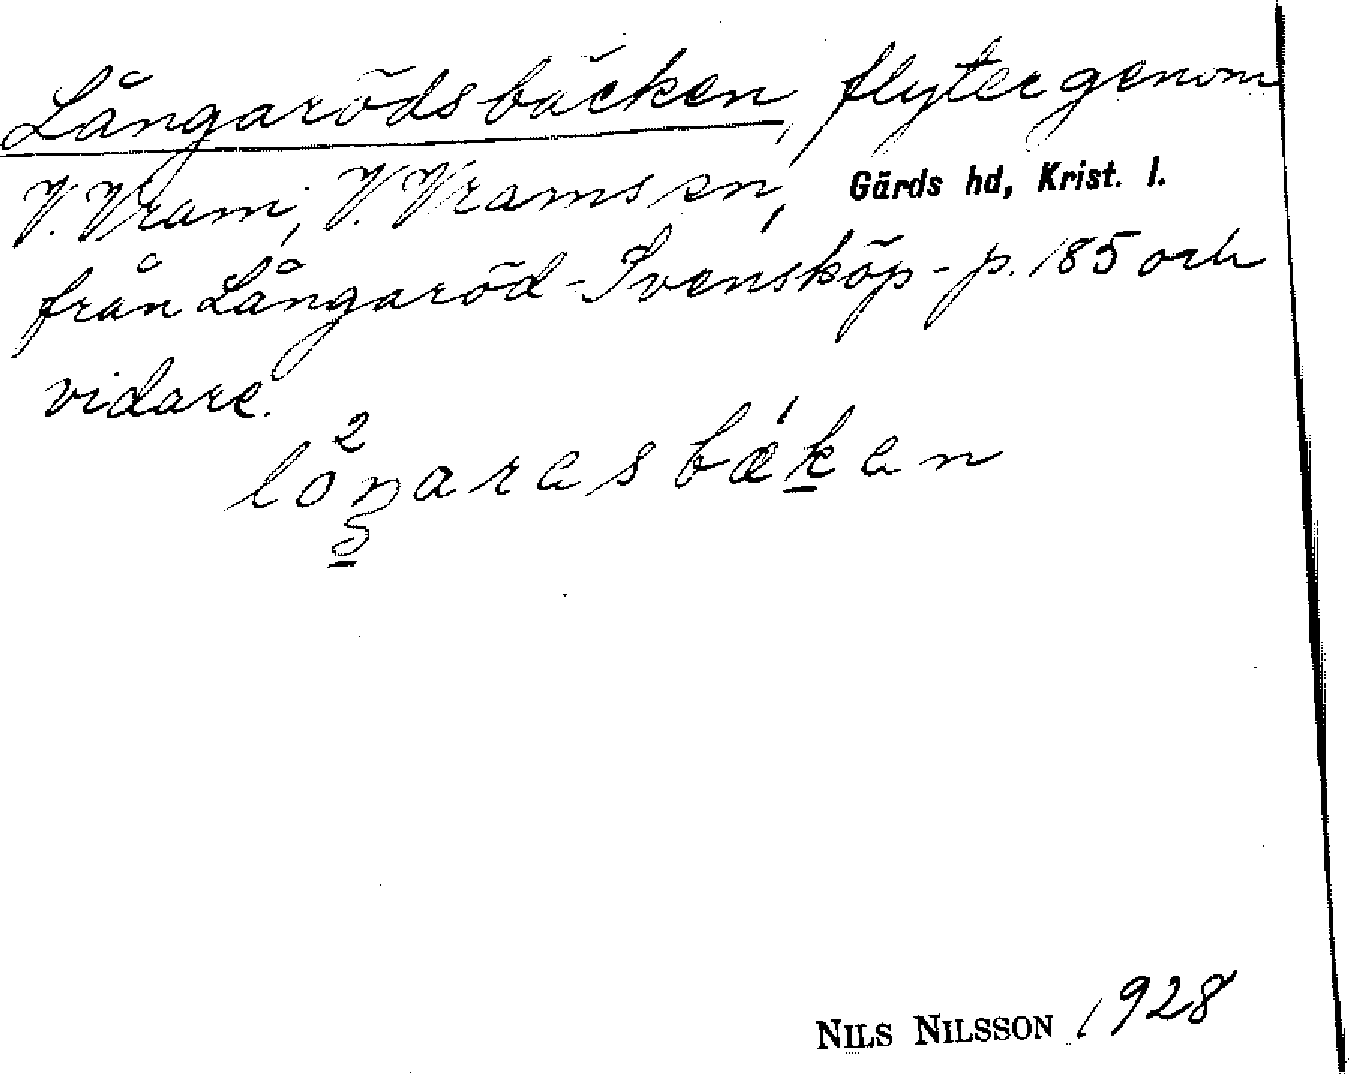 Långarödsbäcken, flyter genom
V. Vram, V. Vrams sn, Gärds hd, Krist. l.
från Långaröd-Svensköp- p. 185 och
vidare.
2
låŋarasbækan
NILS NILSSON 1928